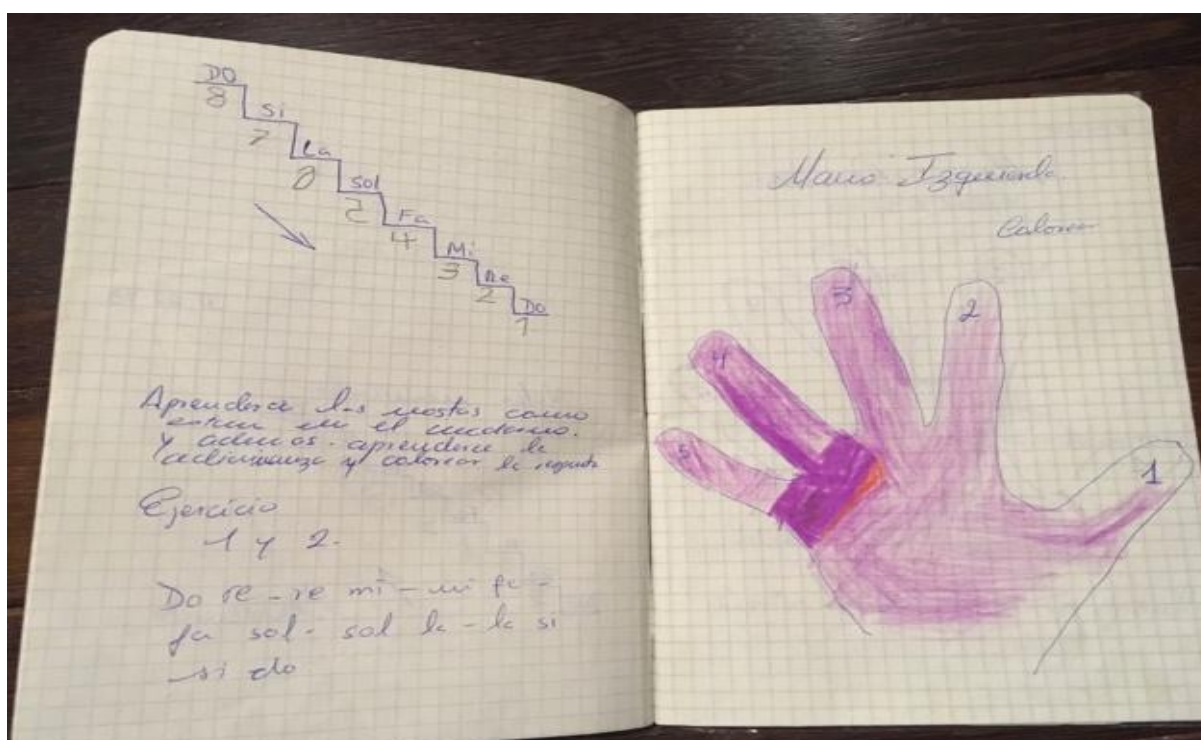 DO
8
Si
7
La
Sol
Fa
4
Mi
3
Re
2
Do
1
Aprenderse las nostas como
estan en el cuaderno.
Y ademas. aprenderse la
adivinanza y colorear la
Ejercicio
1 y 2.
Do re - re mi - mi fa -
fa sol - sol la - la si
si do
Mano Izquierda.
Colorear
3
2
4
5
1